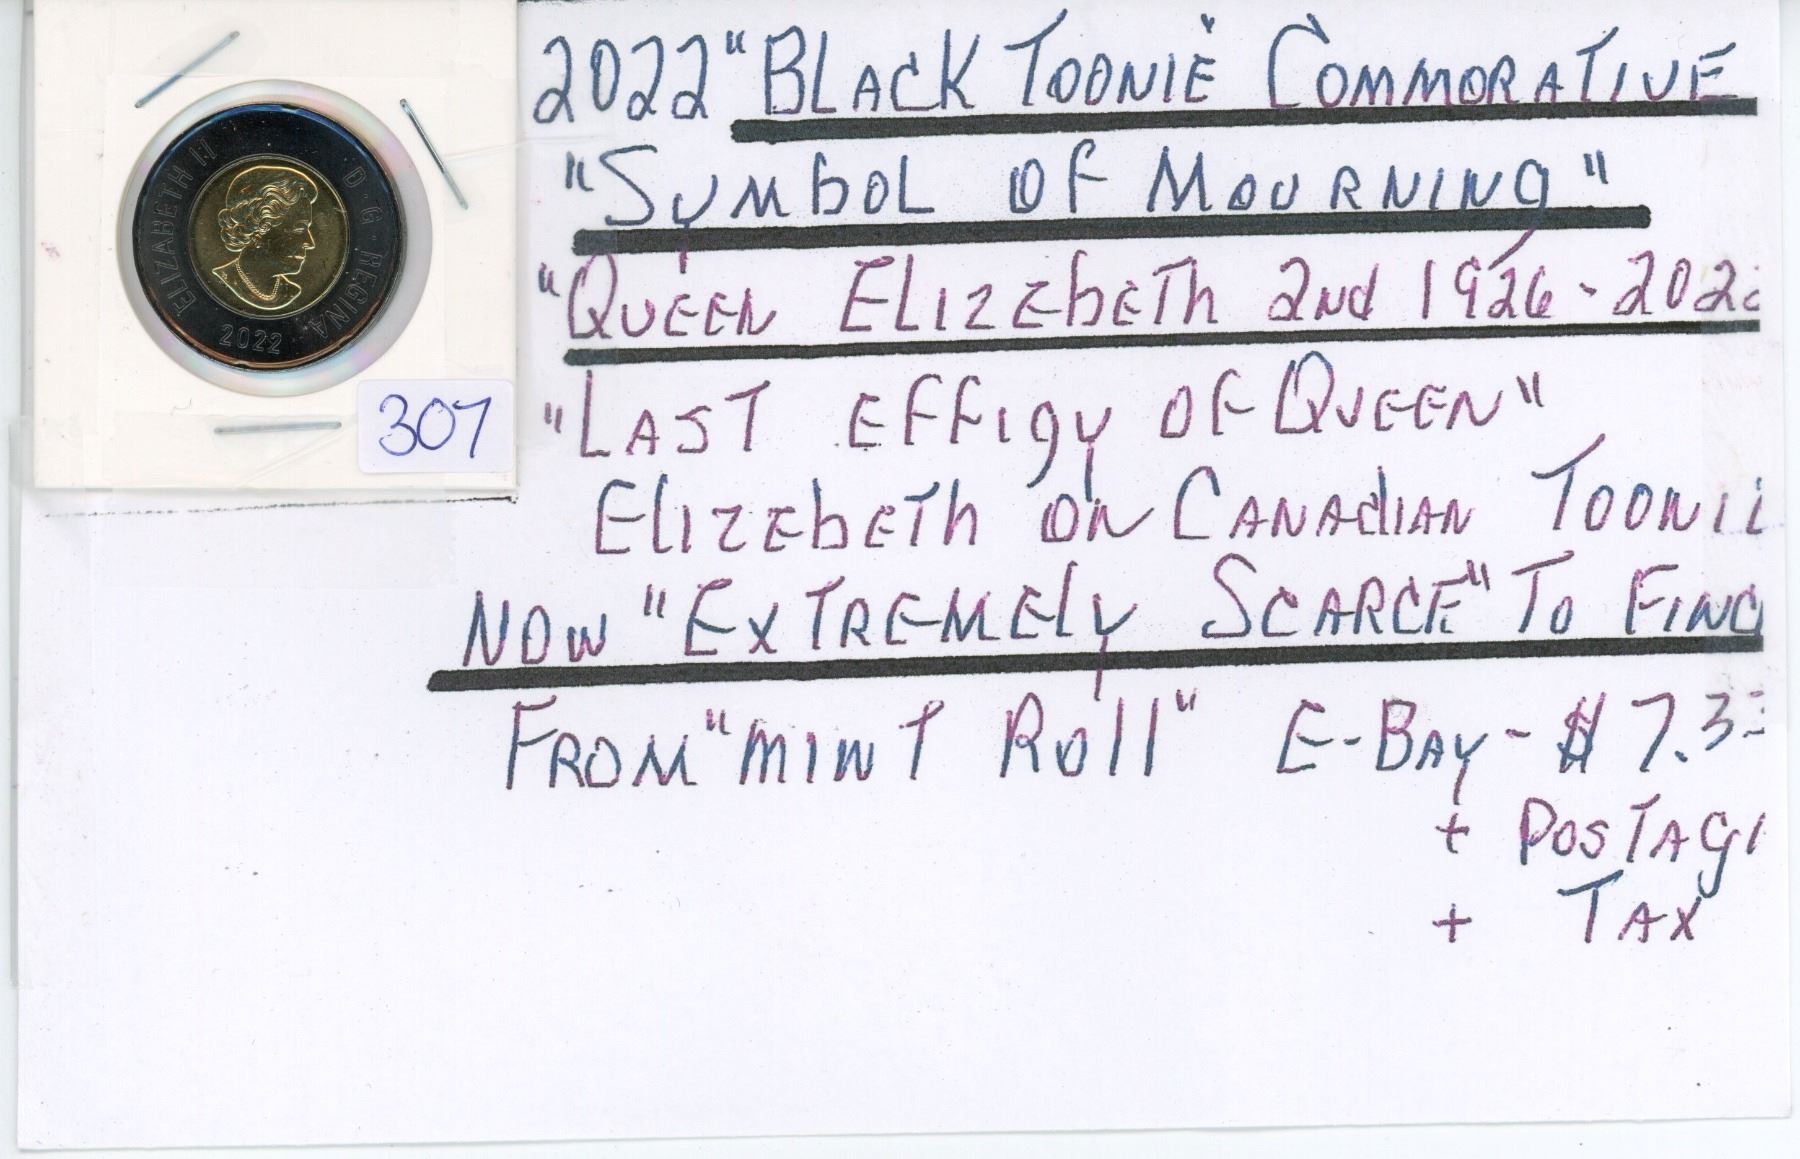 ELIZABETH II D·G·REGINA
2022
307
2022 "BLACK TOONIE" COMMORATIVE
"SYMBOL OF MOURNING"
"QUEEN ELIZEBETH 2ND 1926-202
"LAST EFFIGY OF QUEEN"
ELIZEBETH ON CANADIAN TOONI
NOW "EXTREMELY SCARCE" TO FIND
FROM "MINT ROLL" E-BAY - $7.3
+ POSTAG
+ TAX